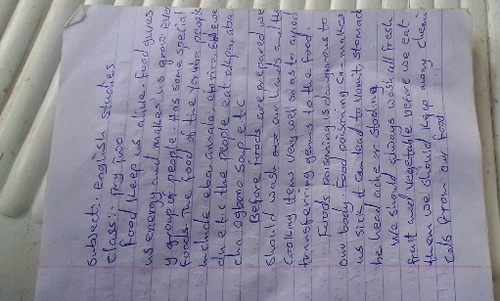 Subject:. English studies
Class:. Pry two
Food keep us alive. Food gives
us energy and makes us grow Eve
y group of people. Has some special
foods. The food of the Yoruba people
include eba, amala, ebiripo, ewe
du etc the people eat akpu, aba
cha ogbono soup etc
Before foods are prepared we
should wash out our hands and the
cooking items very well so as to avoid
transferring gems to the food.
Foods poisoning is dangerous to
our body. Food poisoning can makes
us sick it can lead to vomit, stomach
he head ache or stooling
We should always wash all fresh
fruit and vegetable before we eat
them we should keep away them
cats from our food